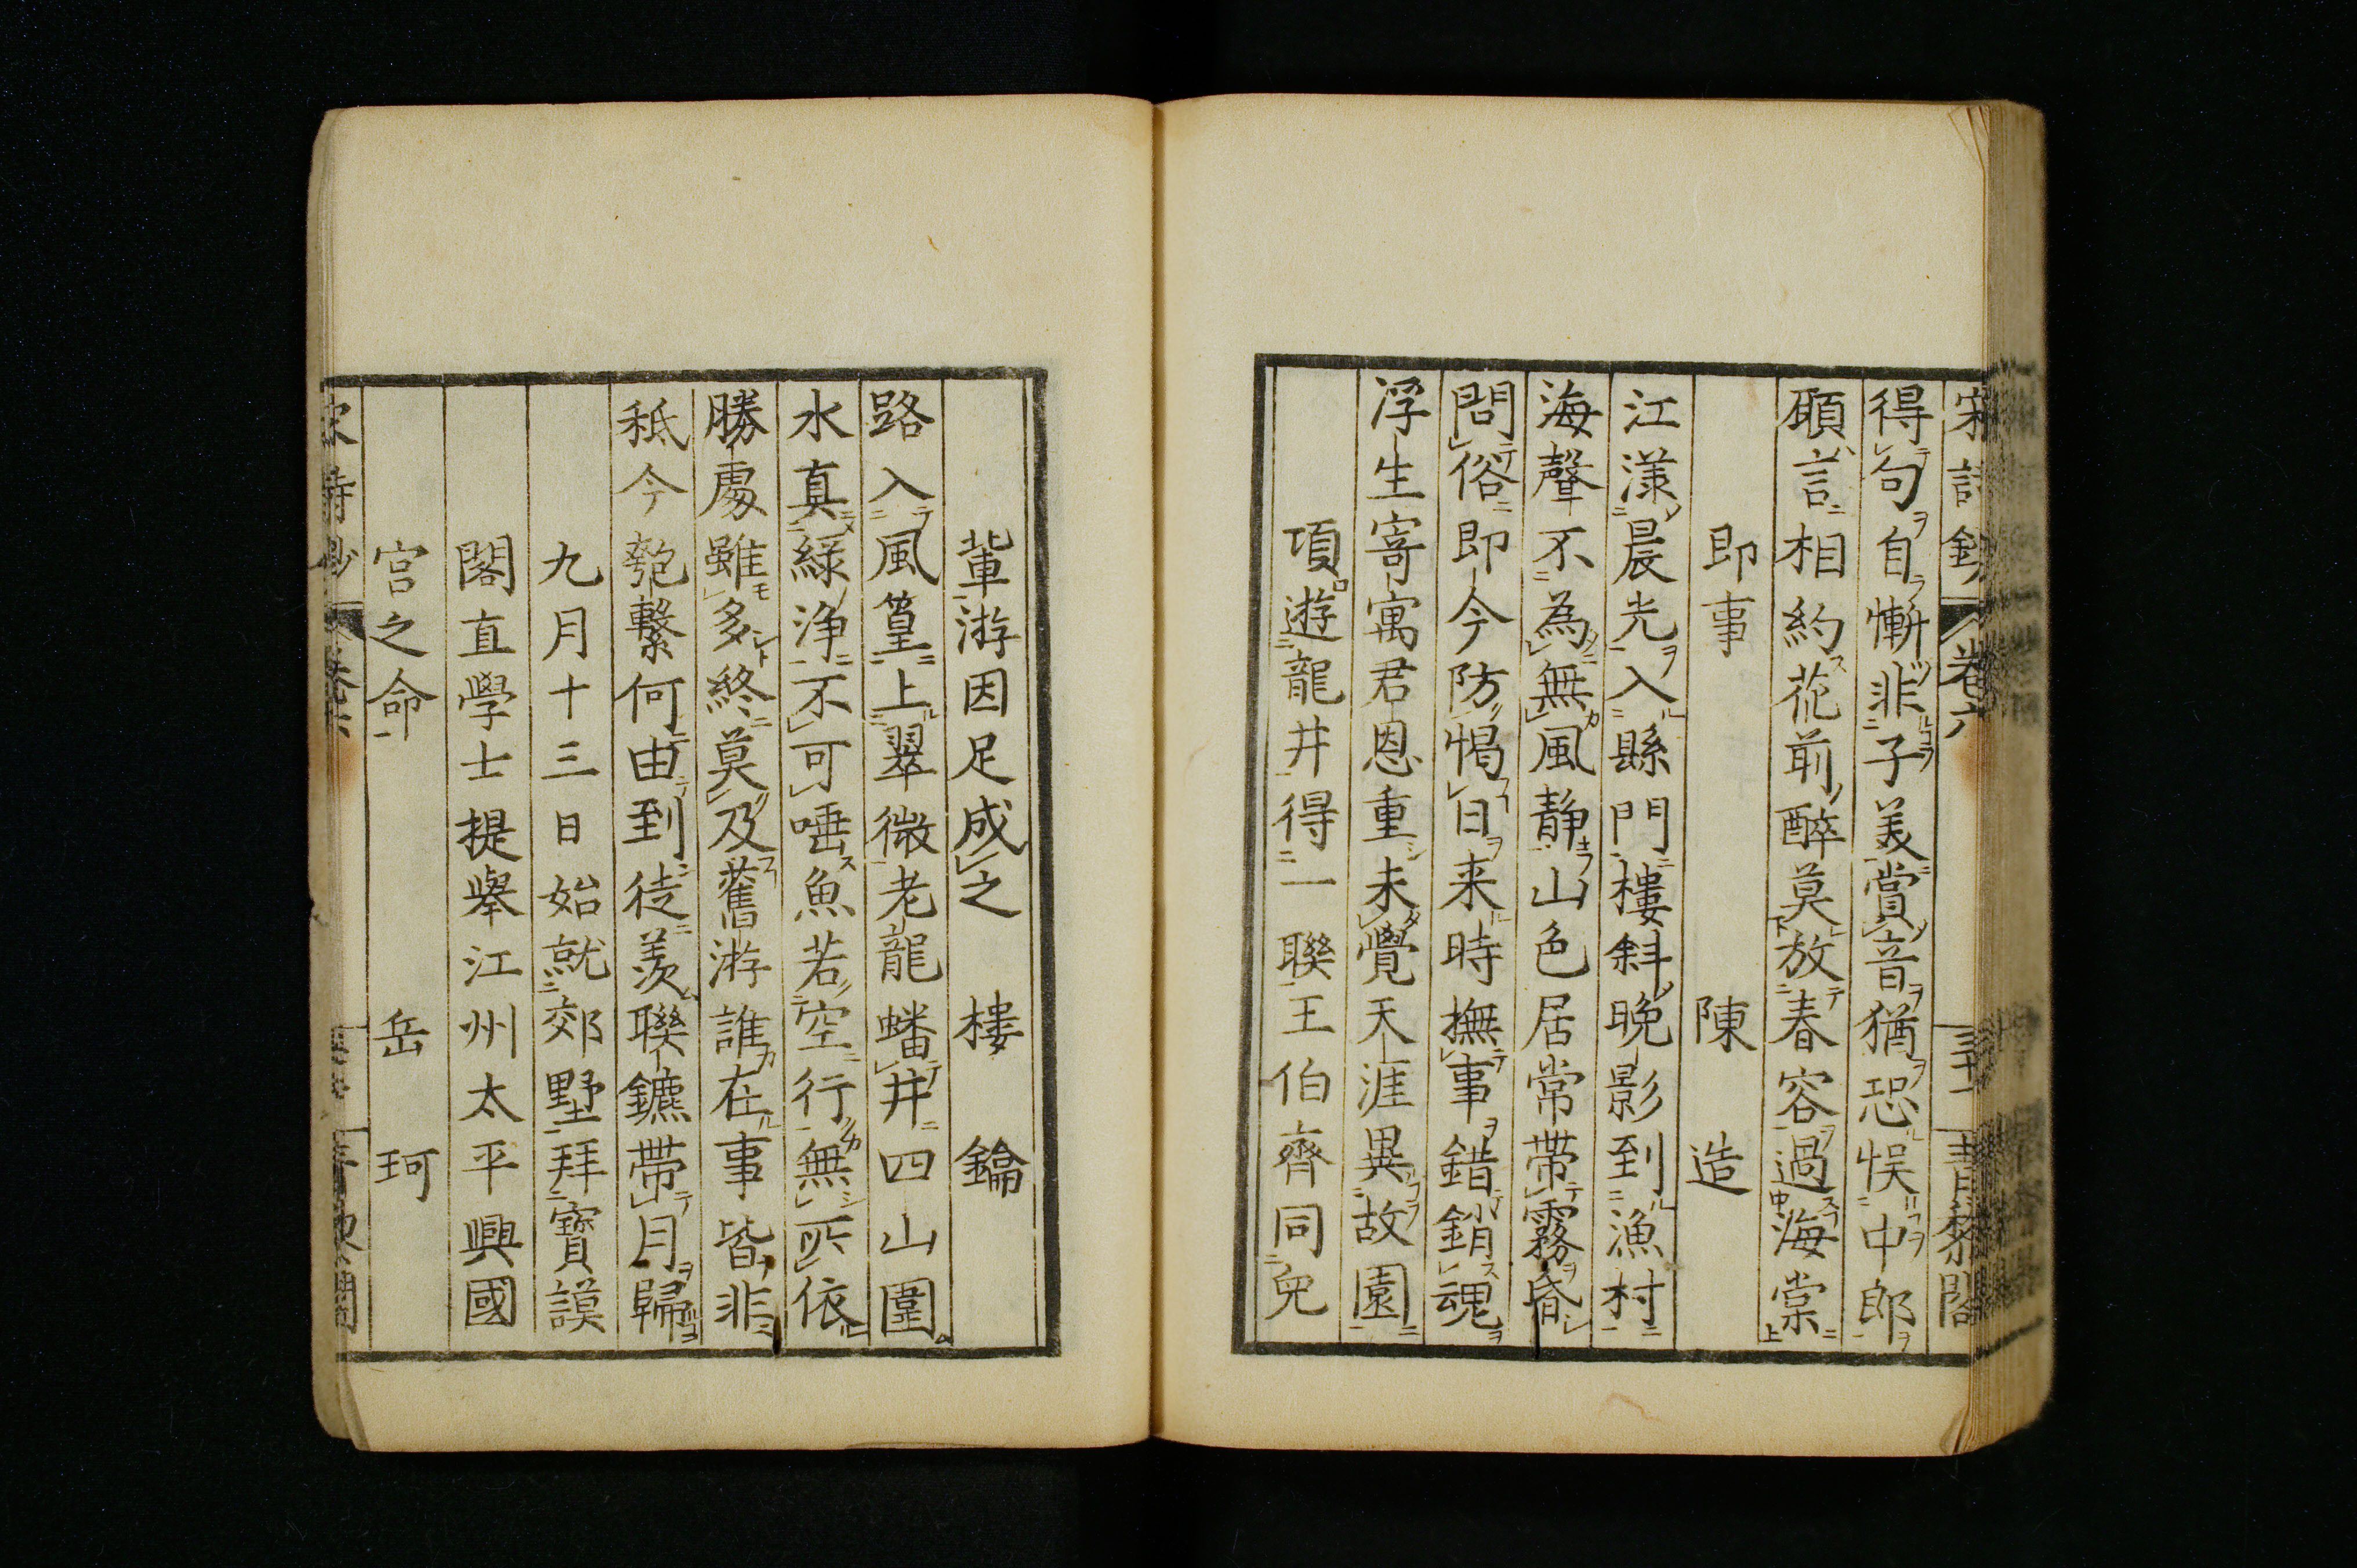 得句自慚非子美賞音猶恐悞中郎
願言相約花前醉莫放春容過海棠
即事 陳造
江漾晨光入縣門樓斜晩影到漁村
海聲不為無風静山色居常帶霧昏
問俗即今防愒日来時撫事錯銷魂
浮生寄寓君恩重未覺天涯異故園
項遊龍井得一聯王伯齊同兒
軰游因足成之 樓鑰
路入風篁上翠微老龍蟠井四山圍
水真綠浄不可唾魚若空行無所依
勝處雖多終莫及舊游誰在事皆非
秪今匏繫何由到徒羨聯鑣帶月歸
九月十三日始就郊墅拜寶謨
閣直學士提舉江州太平興國
宮之命 岳珂